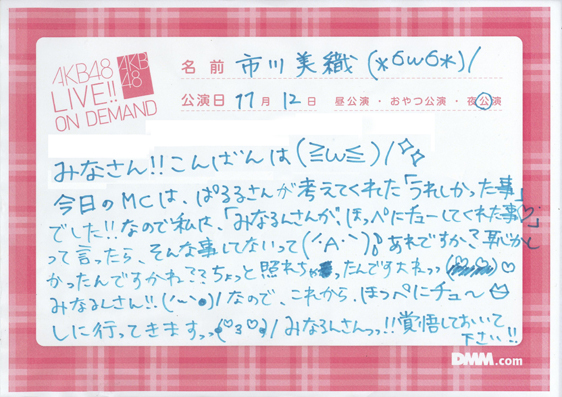 AKB48
LIVE!!
ON DEMAND
AKB
48
名前 市川美織(*6ω6*)/
公演日 11月 12日 昼公演・おやつ公演・夜公演
みなさん!!こんばんは(≧ω≦)/✧✧
今日のMCは、ぱるるさんが考えてくれた「うれしかった事」
でした!!なので私は、「みなるんさんが、ほっぺにちゅーしてくれた事♡」
って言ったら、そんな事してないって(´・A・`)あれですか?恥じかし
かったんですかね??ちょっと照れちゃったんですよねっっ(♡♡)♡
みなるんさん!!(・ー・●)/なので、これから、ほっぺにチュ〜
しに行ってきますっっ(♡3♡)/みなるんさんっっ!!覚悟しておいて
下さい!!
DMM.com